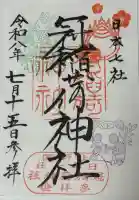 日本七社
冠稲荷神社
令和八年 七月十五日参拝